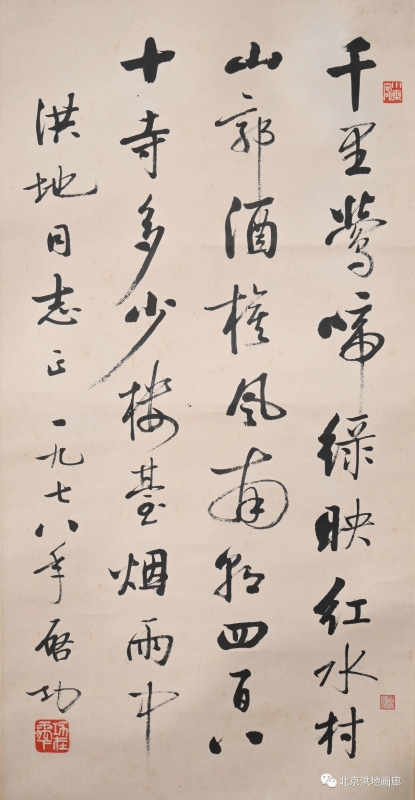 千里莺啼绿映红水村
山郭酒旗风南朝四百八
十寺多少楼臺烟雨中
洪地同志正 一九七八年 启功
北京洪地画廊